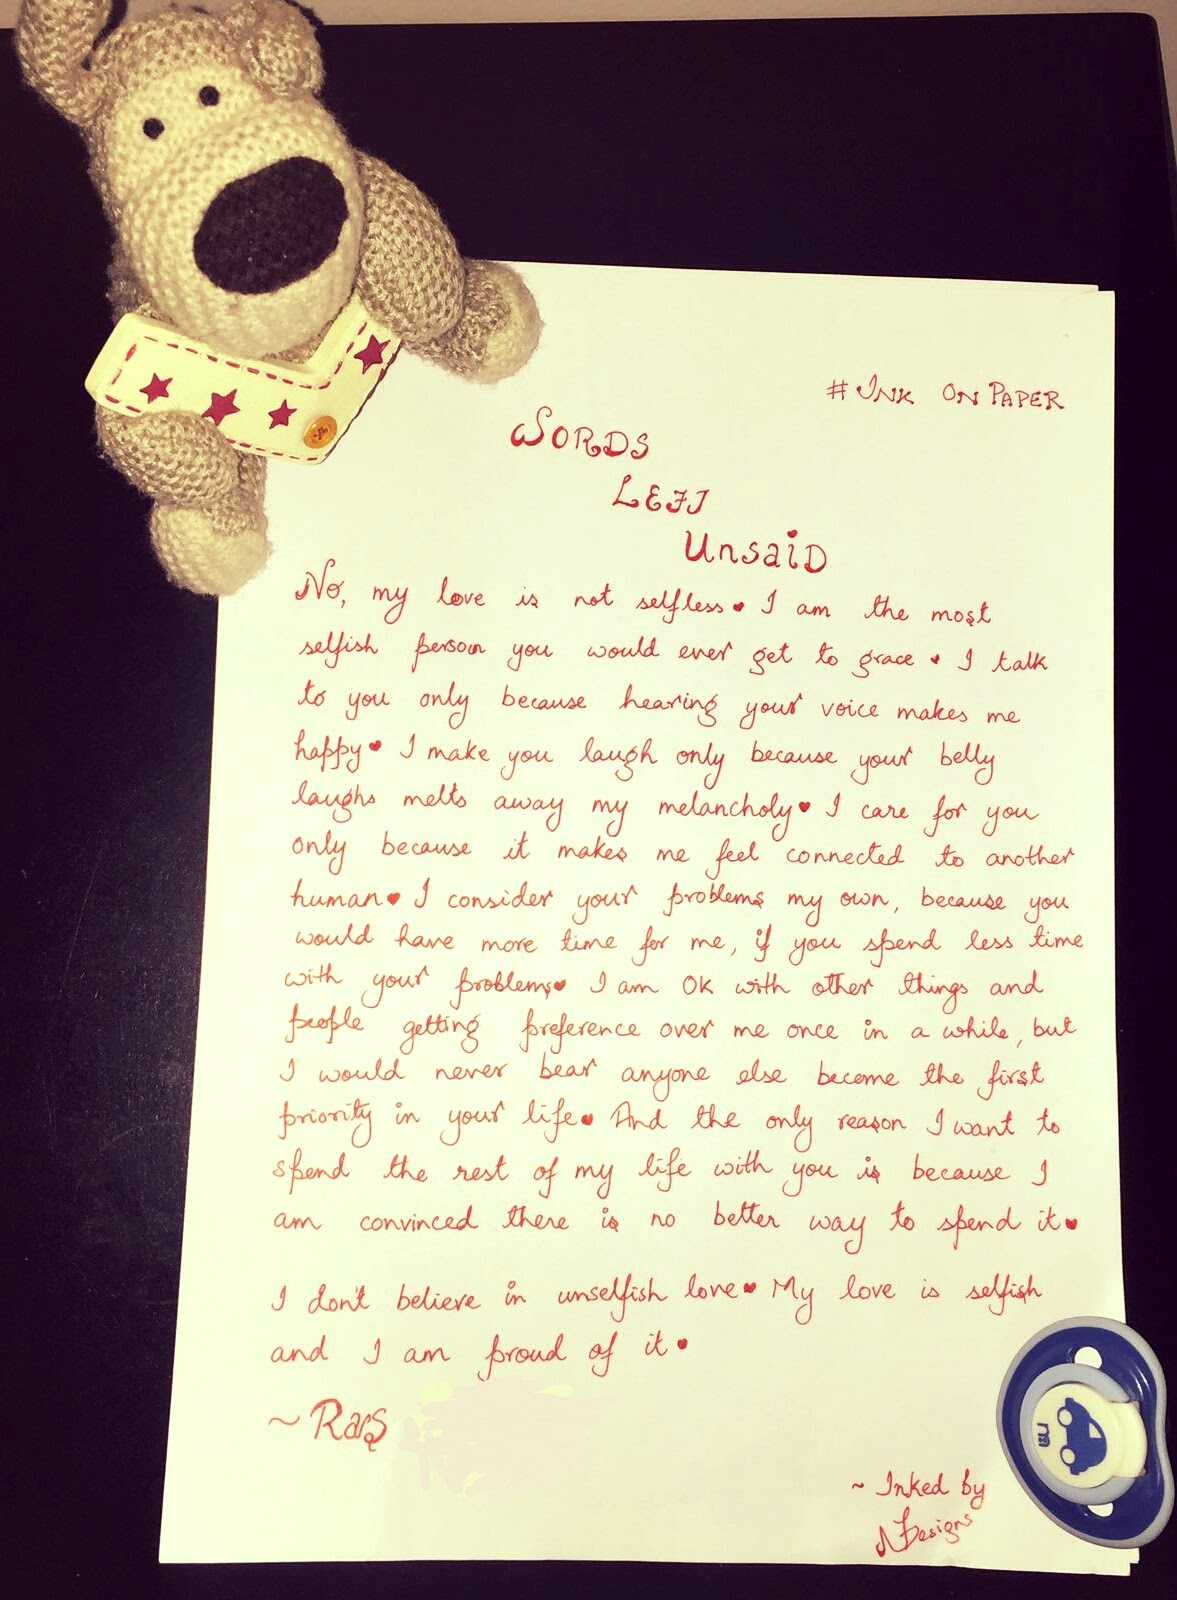 # INK ON PAPER
WORDS
LEFT
UNSAID
No, my love is not selfless. I am the most
selfish person you would ever get to grace. I talk
to you only because hearing your voice makes me
happy. I make you laugh only because your belly
laughs melts away my melancholy. I care for you
only because it makes me feel connected to another
human. I consider your problems my own, because you
would have more time for me, if you spend less time
with your problems. I am OK with other things and
people getting preference over me once in a while, but
I would never bear anyone else become the first
priority in your life. And the only reason I want to
spend the rest of my life with you is because I
am convinced there is no better way to spend it.
I don't believe in unselfish love. My love is selfish
and I am proud of it.
~ RarS
~ Inked by
Designs